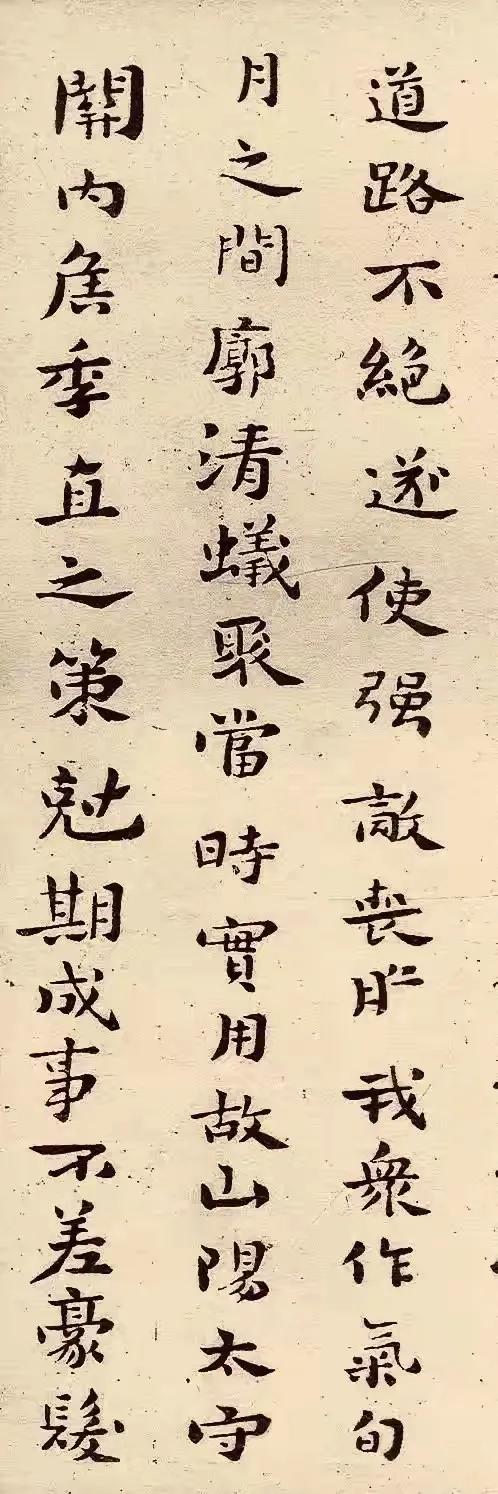 道路不絕遂使强敵喪膽我衆作氣旬
月之間廓清蟻聚當時實用故山陽太守
關內侯季直之策尅期成事不差豪髮